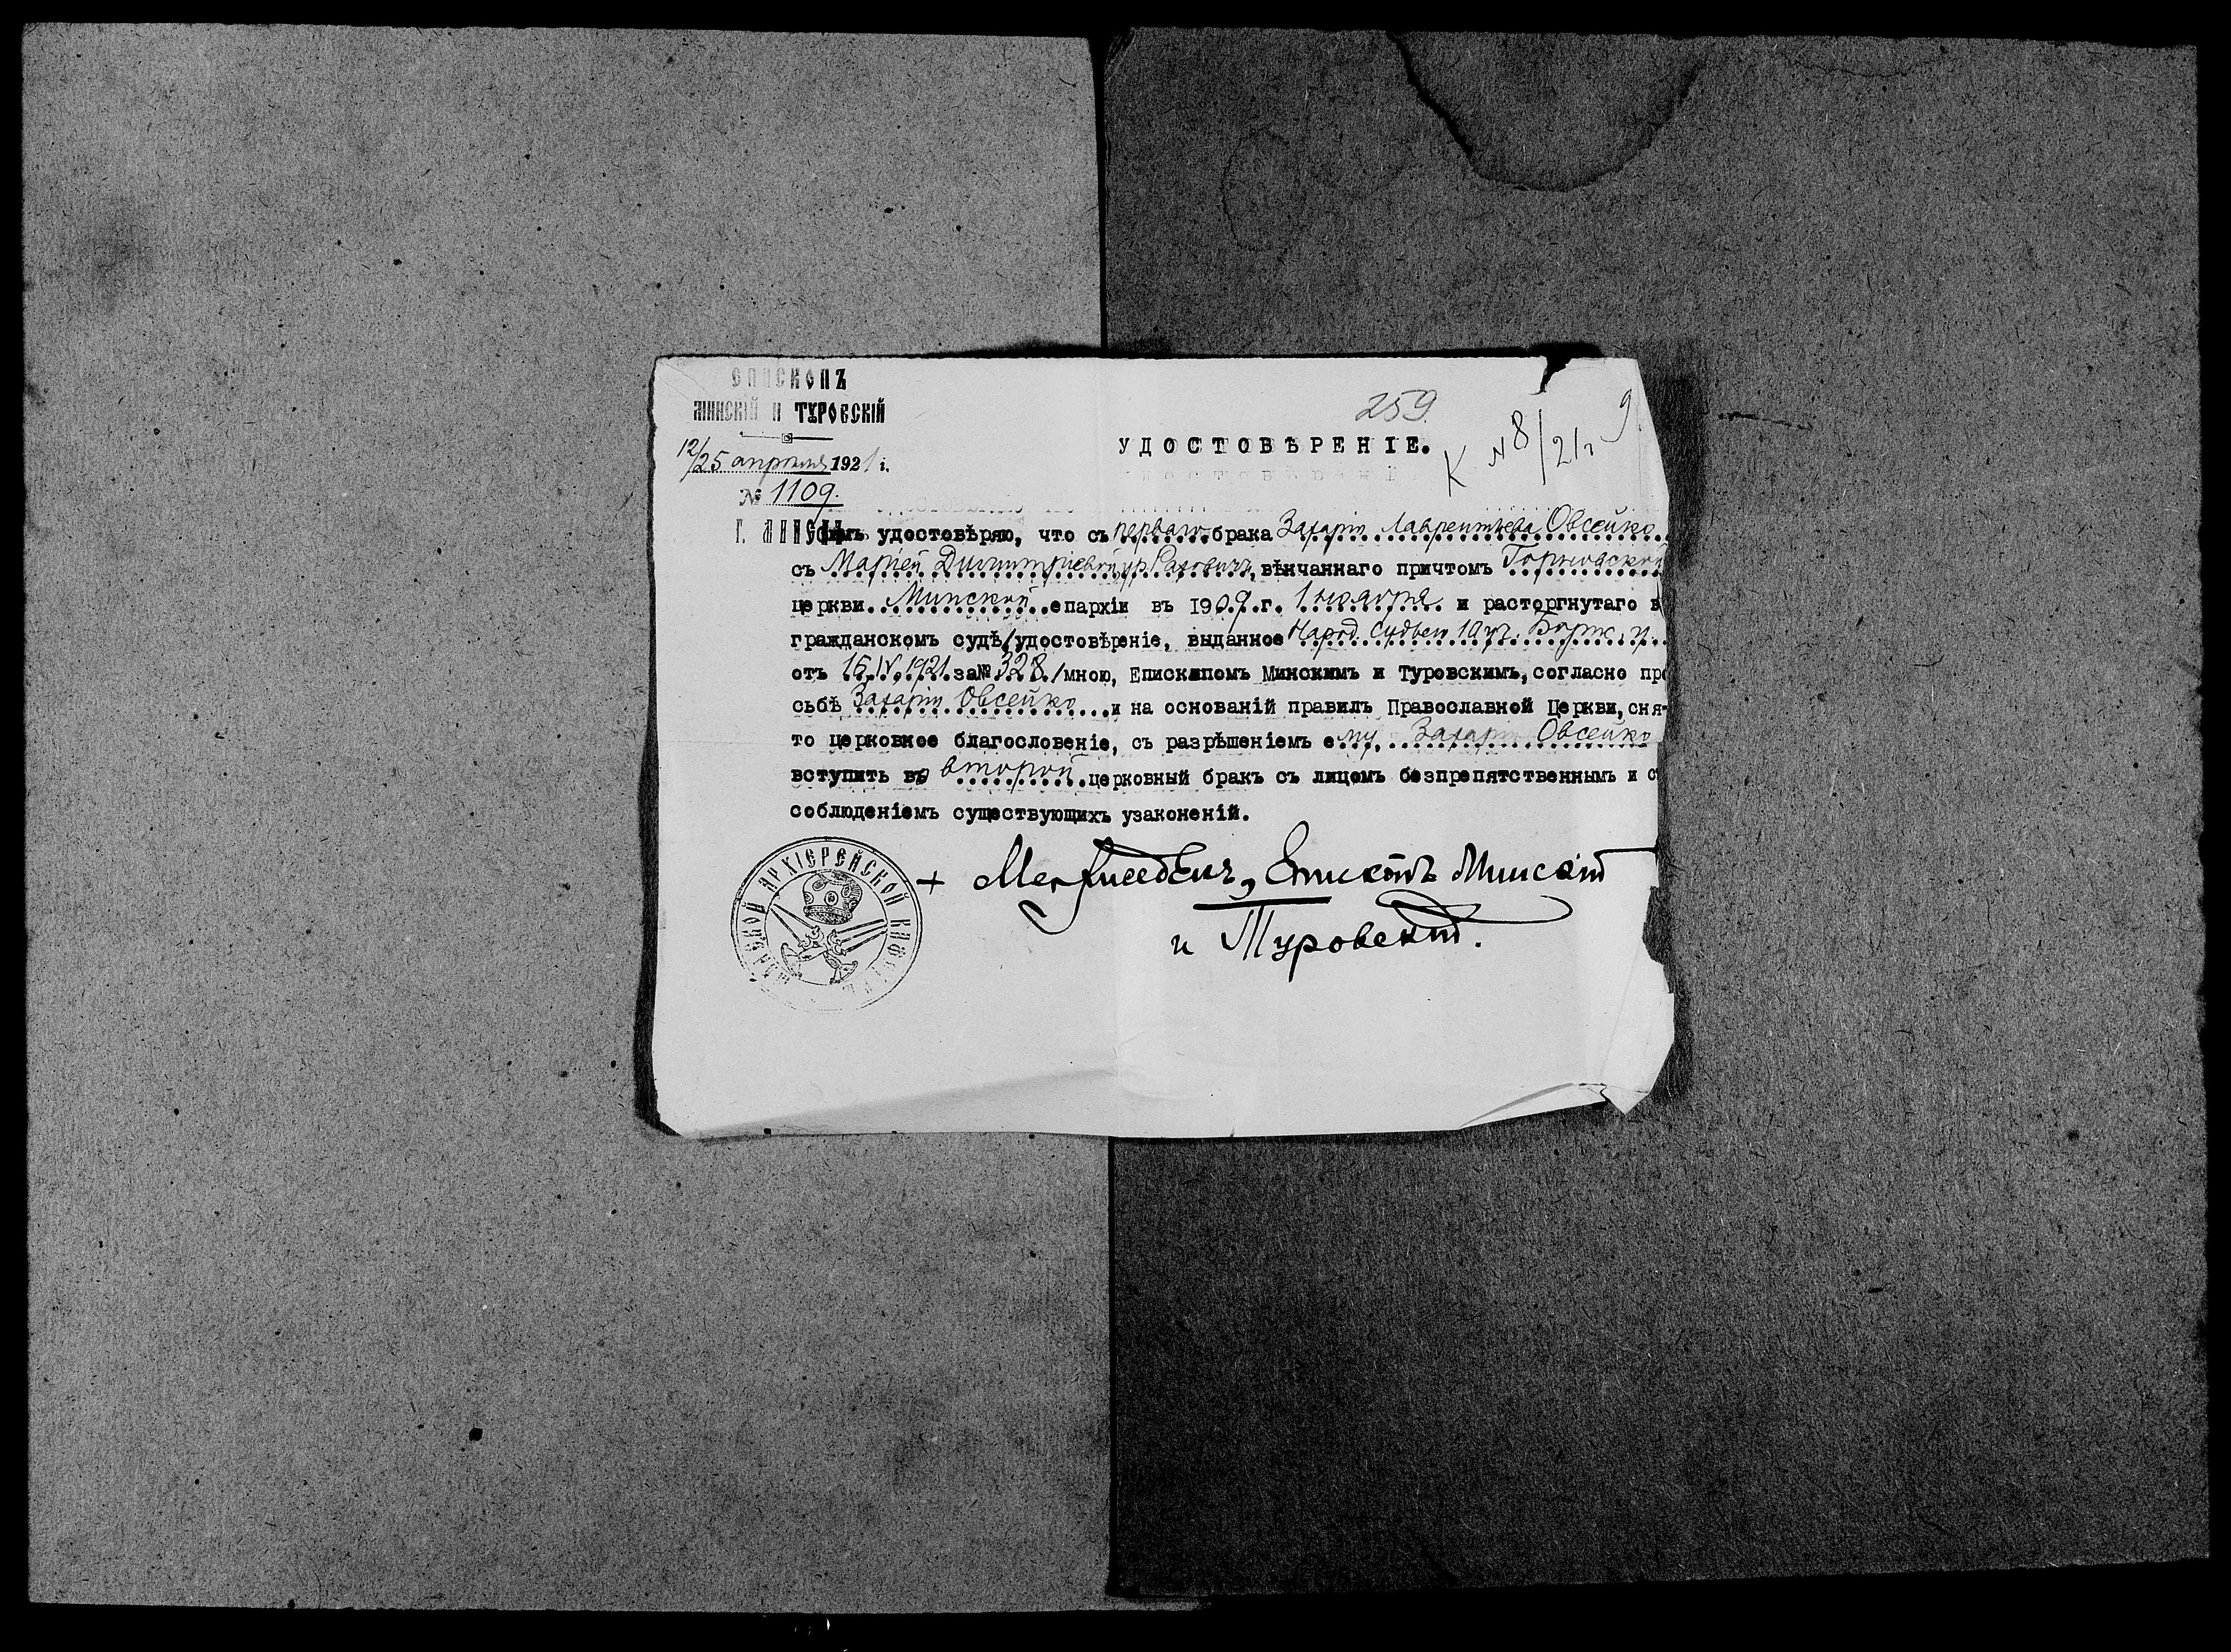 ЕПИСКОПЪ
МИНСКІЙ И ТУРОВСКІЙ
12/25 апрѣля 1921 г.
№ 1109.
Г. МИНСКЪ
259
К № 8/21 г
9
УДОСТОВѢРЕНІЕ.
Симъ удостовѣряю, что съ перваго брака Захарія Лаврентьева Овсейко
съ Маріей Димитріевой ур. Рахович, вѣнчаннаго причтомъ
церкви Минской епархіи въ 1909 г. 1 ноября и расторгнутаго в
гражданскомъ судѣ/удостовѣреніе, выданное Народ. Судьей 10 уч. Борис. у.
отъ 15.IV.1921 за № 328/мною, Епископомъ Минскимъ и Туровскимъ, согласно про
сьбѣ Захарія Овсейко и на основаній правилъ Православной Церкви, сня-
то церковное благословеніе, съ разрѣшеніемъ ему, Захарію Овсейко
вступить во второй церковный бракъ съ лицомъ безпрепятственнымъ и съ
соблюденіемъ существующихъ узаконеній.
+ Мелхиседекъ, Епископъ Минскій
и Туровскій.
МИНСКОЙ АРХІЕРЕЙСКОЙ КАѲЕДРЫ